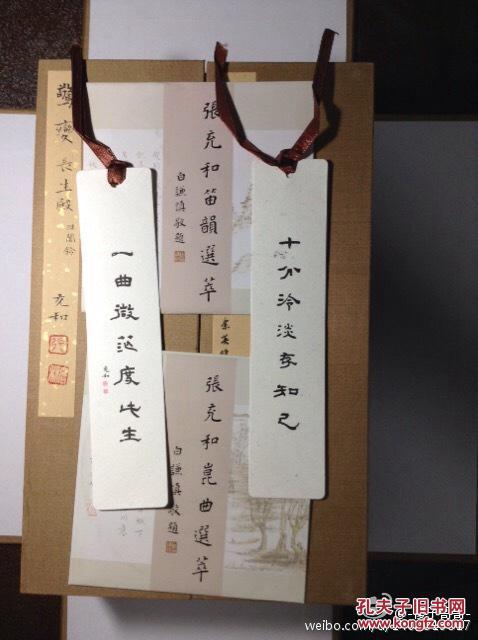 十分冷淡存知己
一曲微茫度此生
充和
張充和笛韻選萃
白謙慎敬題
張充和崑曲選萃
白謙慎敬題
驚變
長生殿
充和
孔夫子旧书网